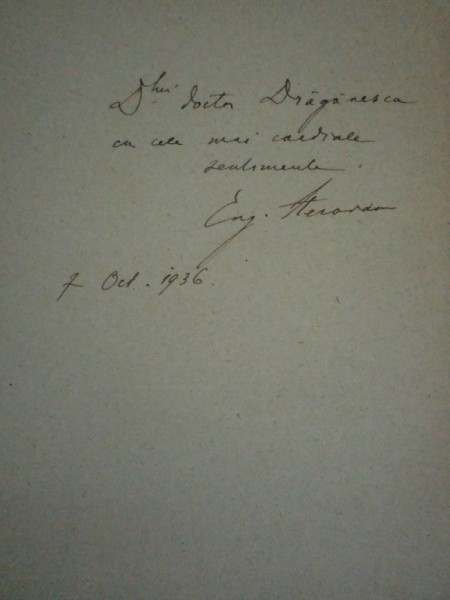 Dlui doctor Drăgănescu
cu cele mai cordiale
sentimente.
Eug.
7 Oct. 1936.